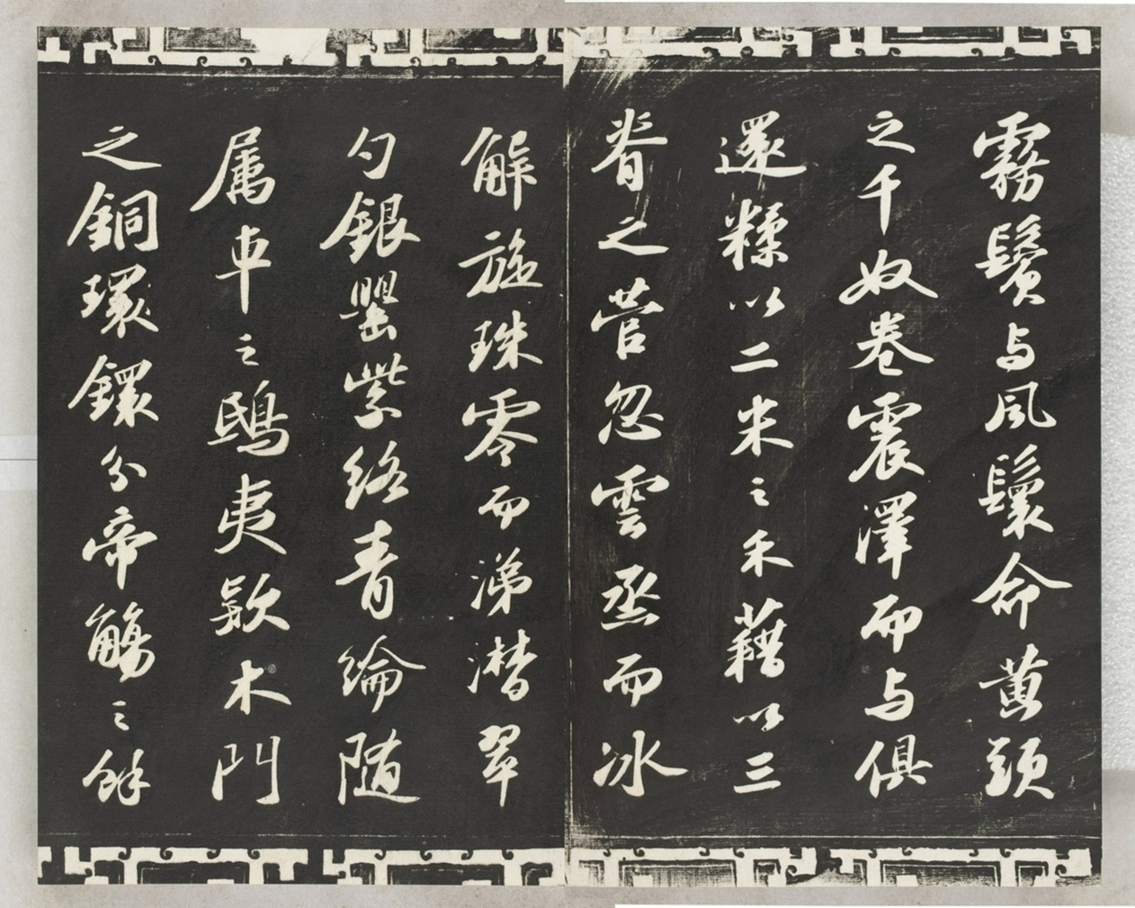 霧鬢与風鬟命黃頭
之千奴卷震澤而与俱
還糅以二米之禾藉以三
脊之菅忽雲烝而冰
解旋珠零而涕潸翠
勺銀罌紫絡青綸随
属車之鴟夷款木門
之銅環鐶分帝觴之餘